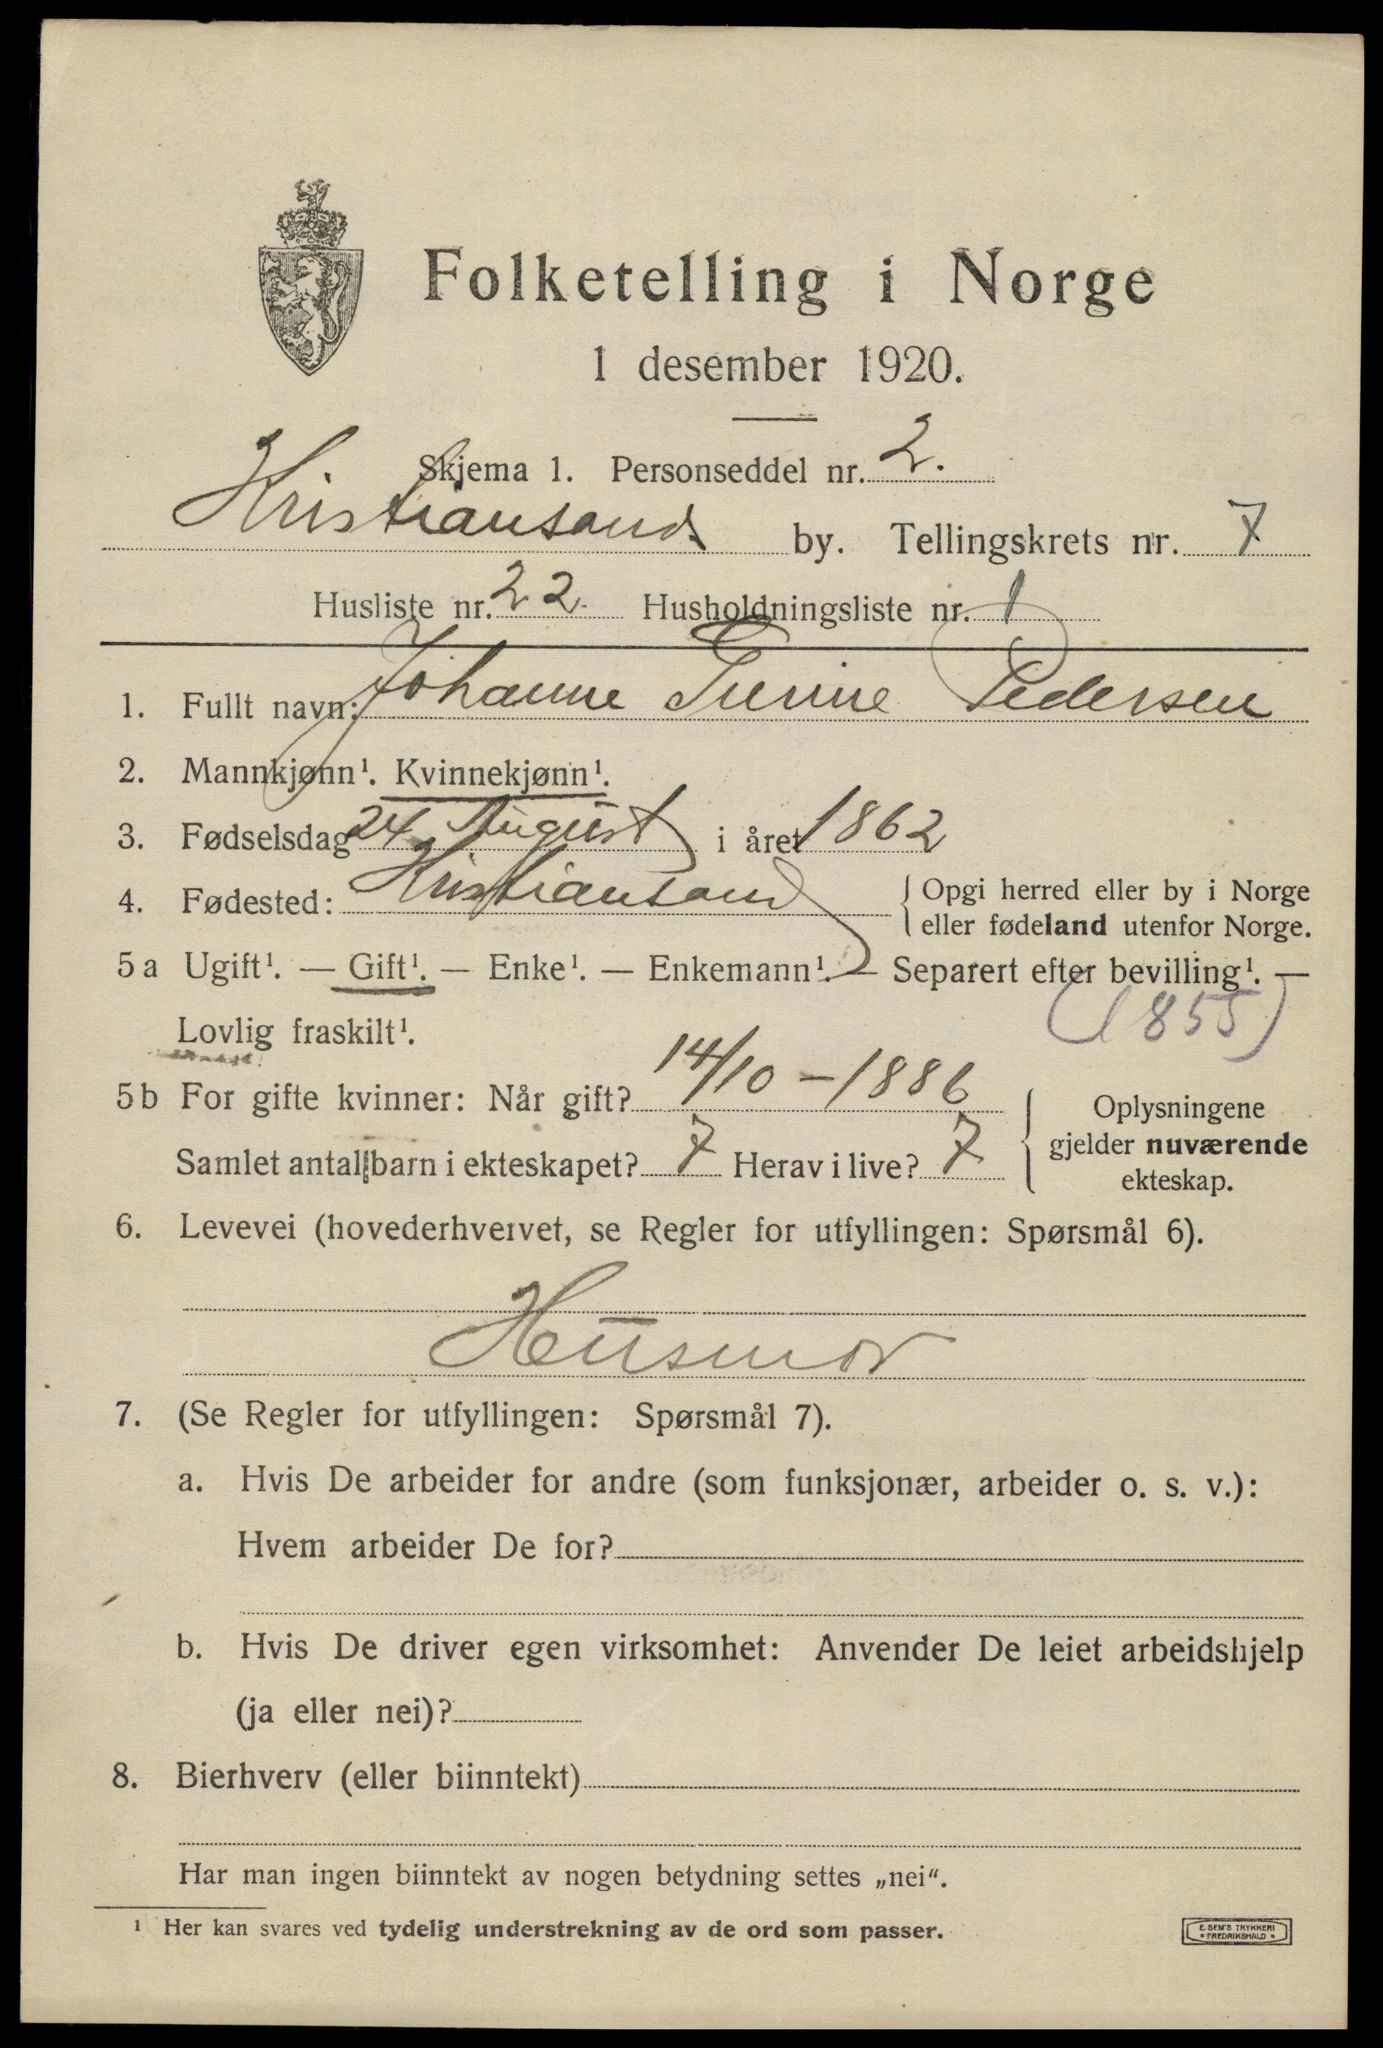 Folketelling i Norge
1 desember 1920.
Skjema 1. Personseddel nr. 2.
Kristiansand by. Tellingskrets nr. 7
Husliste nr. 22. Husholdningsliste nr. 1
1. Fullt navn: Johanne Pedersen
2. Mannkjønn¹. Kvinnekjønn¹.
3. Fødselsdag 24 August i året 1862
4. Fødested: Kristiansand { Opgi herred eller by i Norge
eller fødeland utenfor Norge.
5 a Ugift¹. — Gift¹. — Enke¹. — Enkemann¹. — Separert efter bevilling¹. —
Lovlig fraskilt¹. (1855)
5 b For gifte kvinner: Når gift? 14/10 – 1886 { Oplysningene
gjelder nuværende
ekteskap.
Samlet antall barn i ekteskapet? 7 Herav i live? 7
6. Levevei (hovederhvervet, se Regler for utfyllingen: Spørsmål 6).
Husmor
7. (Se Regler for utfyllingen: Spørsmål 7).
a. Hvis De arbeider for andre (som funksjonær, arbeider o. s. v.):
Hvem arbeider De for?
b. Hvis De driver egen virksomhet: Anvender De leiet arbeidshjelp
(ja eller nei)?
8. Bierhverv (eller biinntekt)
Har man ingen biinntekt av nogen betydning settes „nei“.
¹ Her kan svares ved tydelig understrekning av de ord som passer.
E. SEM'S TRYKKERI
* FREDRIKSHALD *